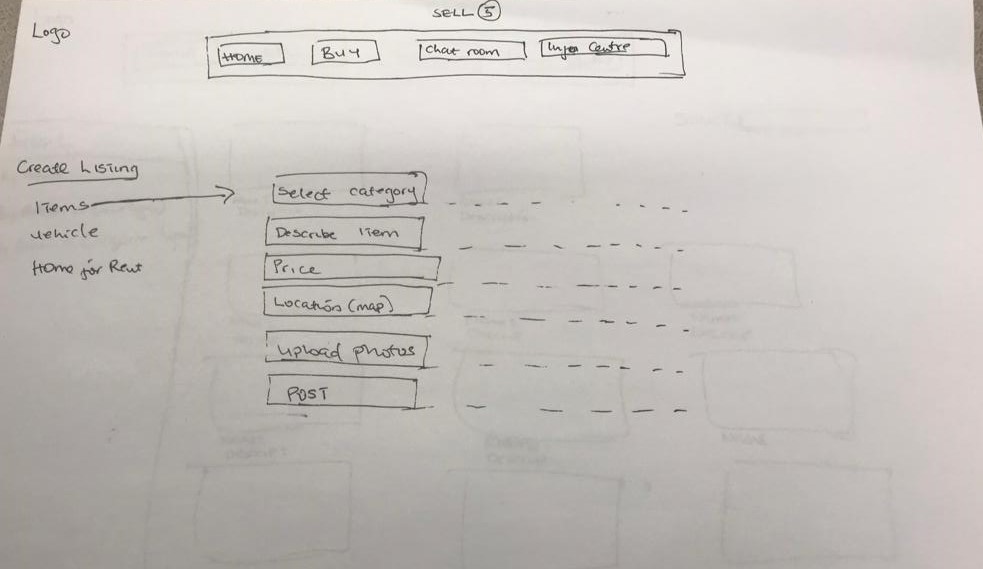 SELL 5
Logo
HOME
BUY
Chat room
Info Centre
Create Listing
Items
vehicle
Home for Rent
Select category
Describe Item
Price
Location (map)
upload photos
POST